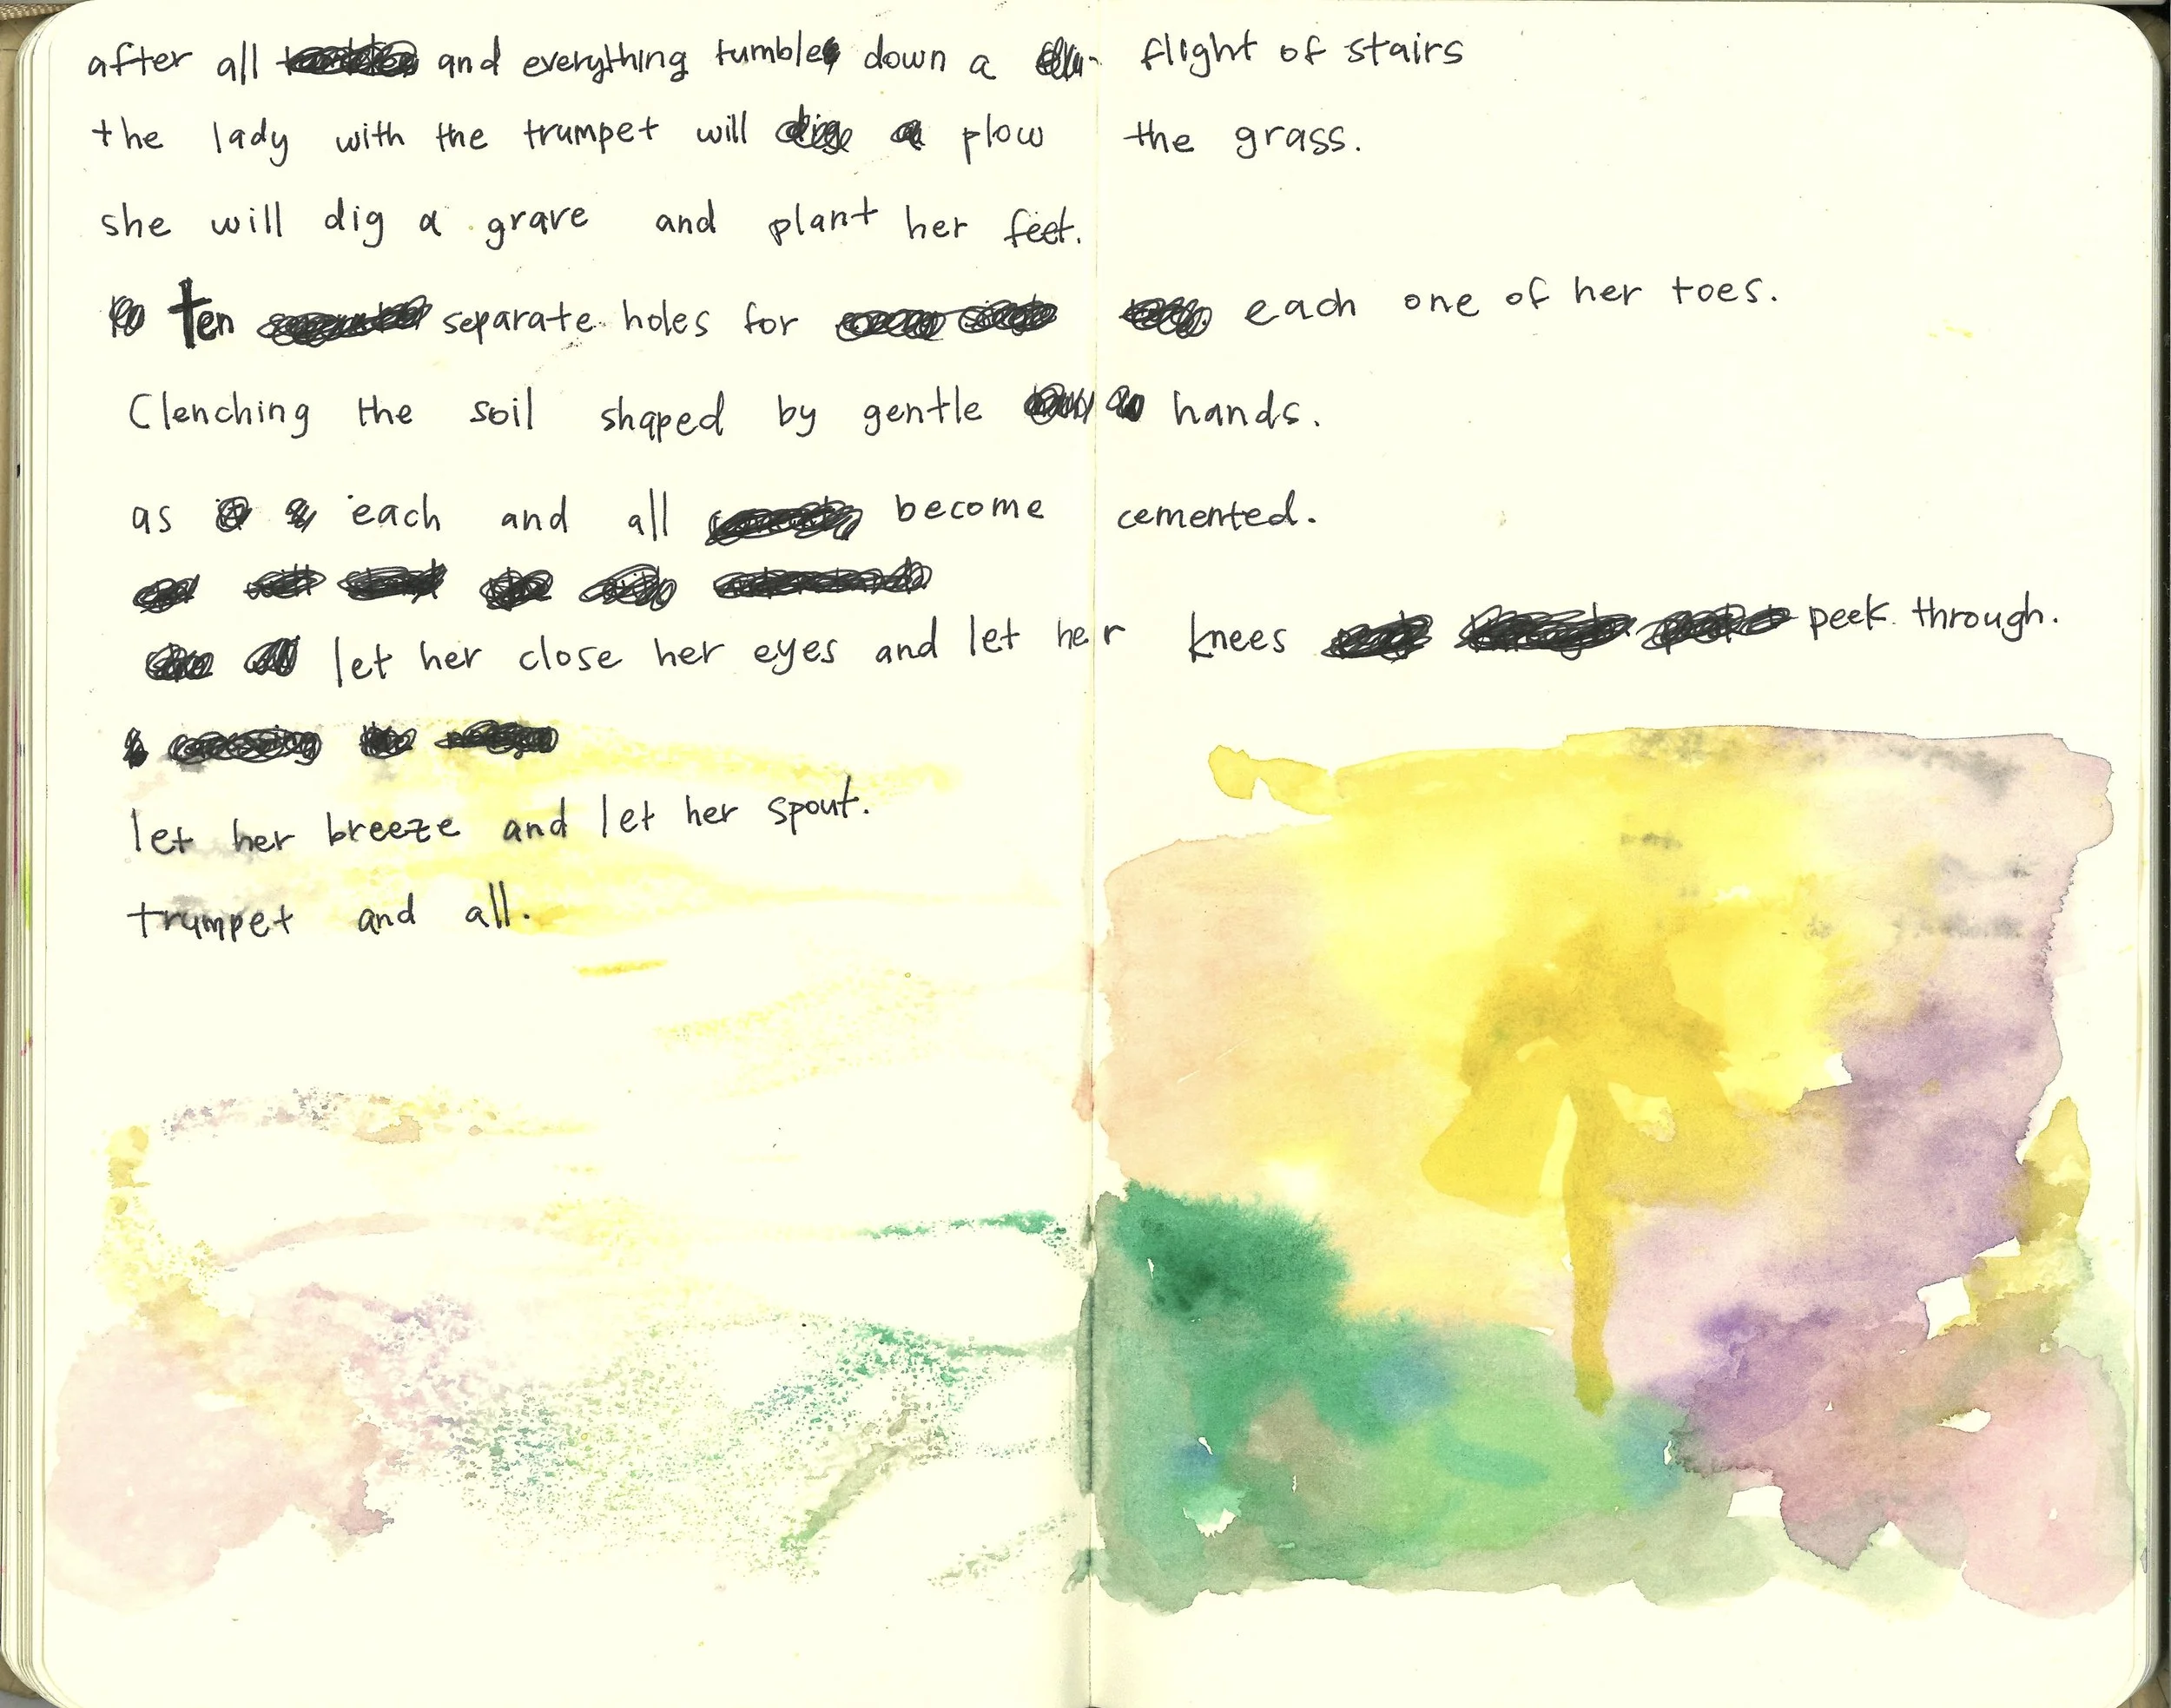 after all and everything tumble down a flight of stairs
the lady with the trumpet will plow the grass.
she will dig a grave and plant her feet.
ten separate holes for each one of her toes.
Clenching the soil shaped by gentle hands.
as each and all become cemented.
let her close her eyes and let her knees peek through.
let her breeze and let her spout.
trumpet and all.